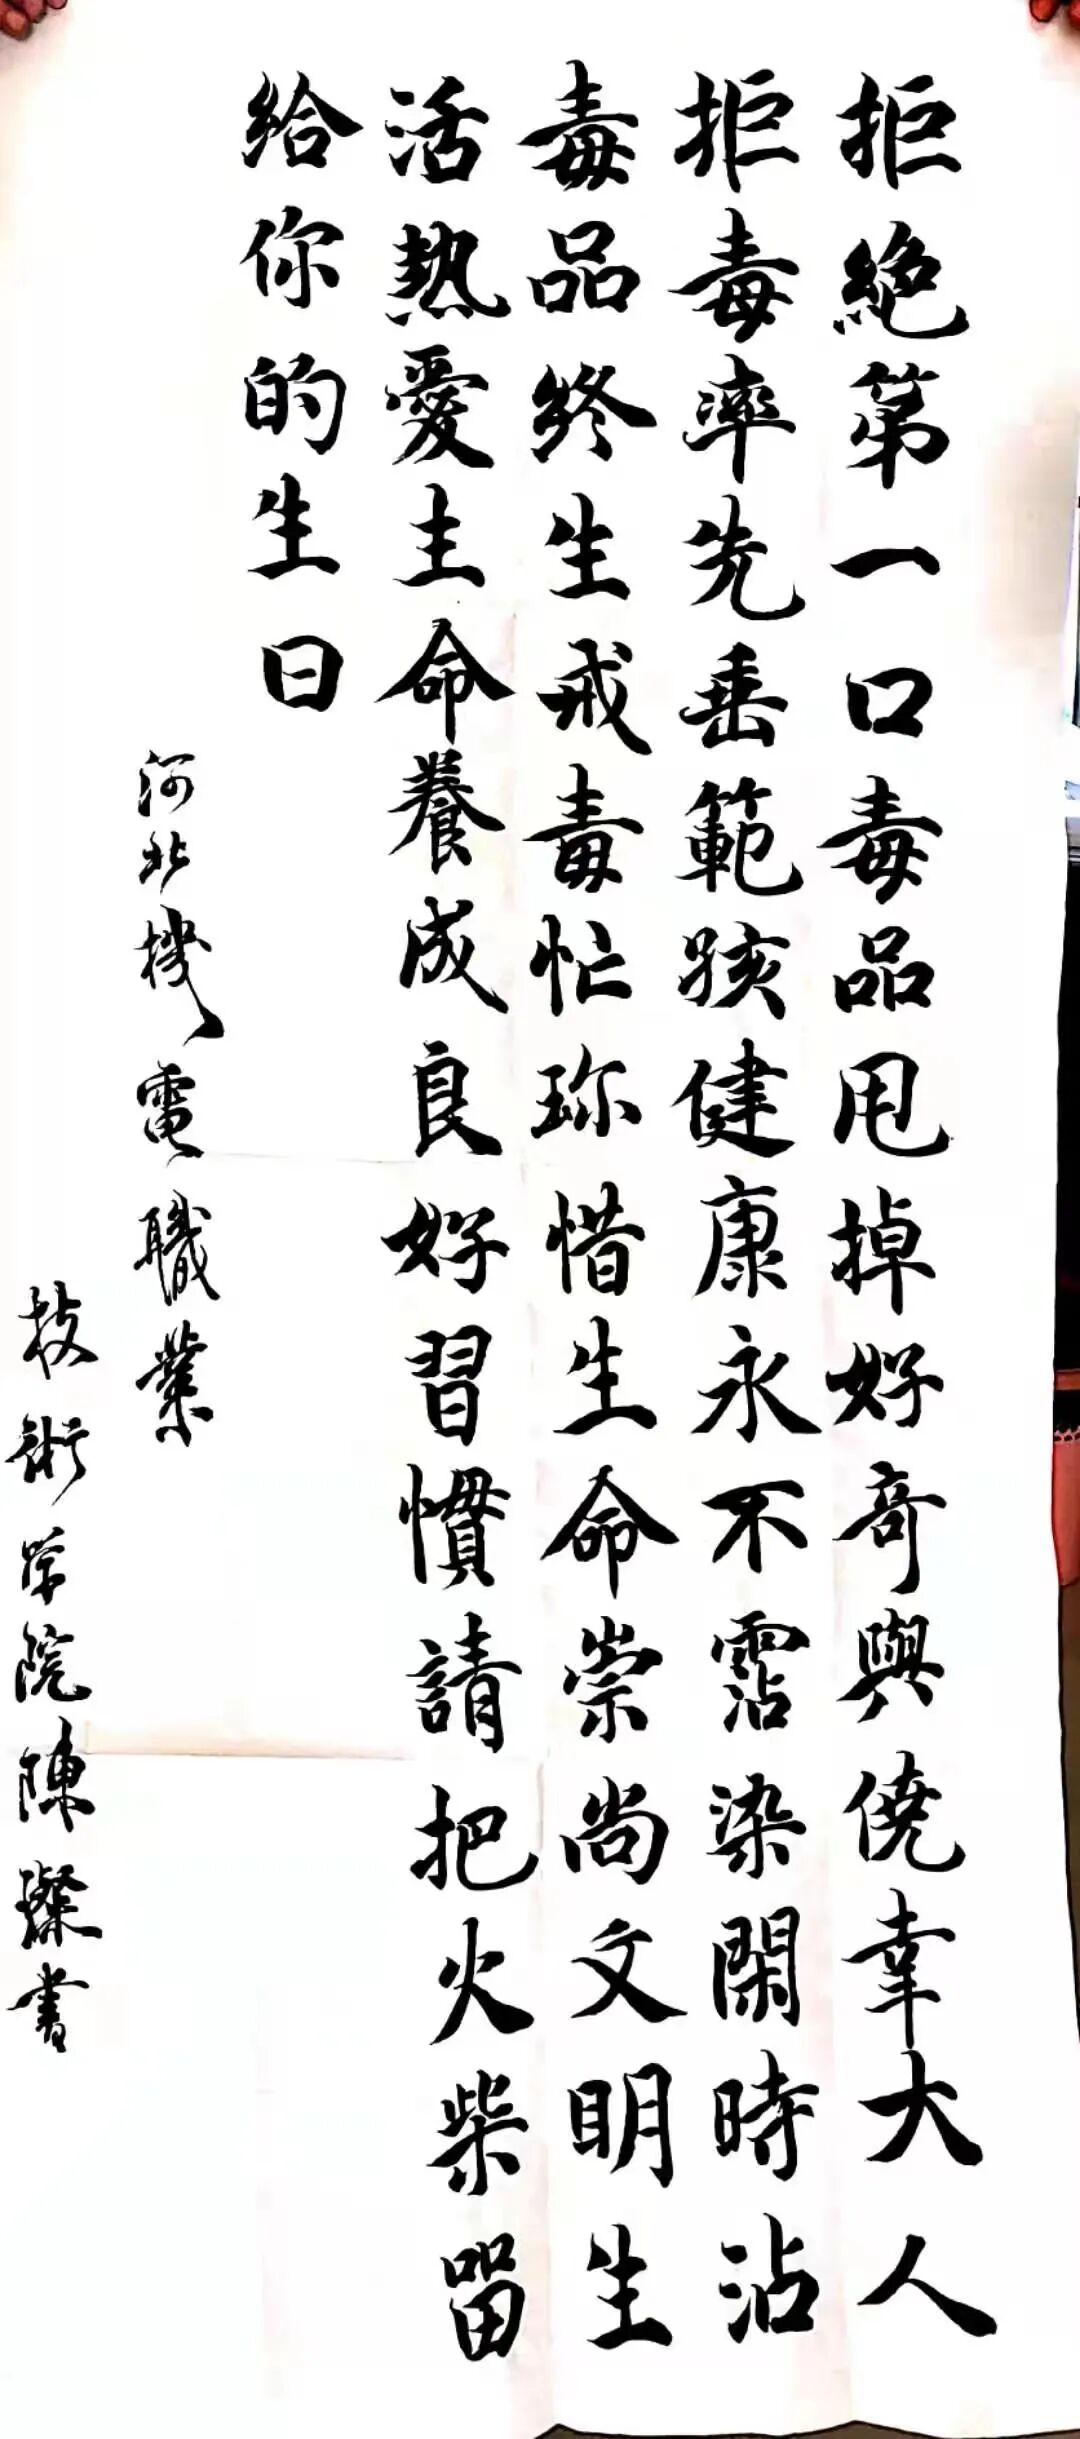 拒絶第一口毒品甩掉好奇與僥幸大人
拒毒率先垂範孩健康永不霑染閑時沾
毒品終生戒毒忙珎惜生命崇尚文明生
活熱愛生命養成良好習慣請把火柴留
給你的生日
河北機電職業
技術学院陳璨書